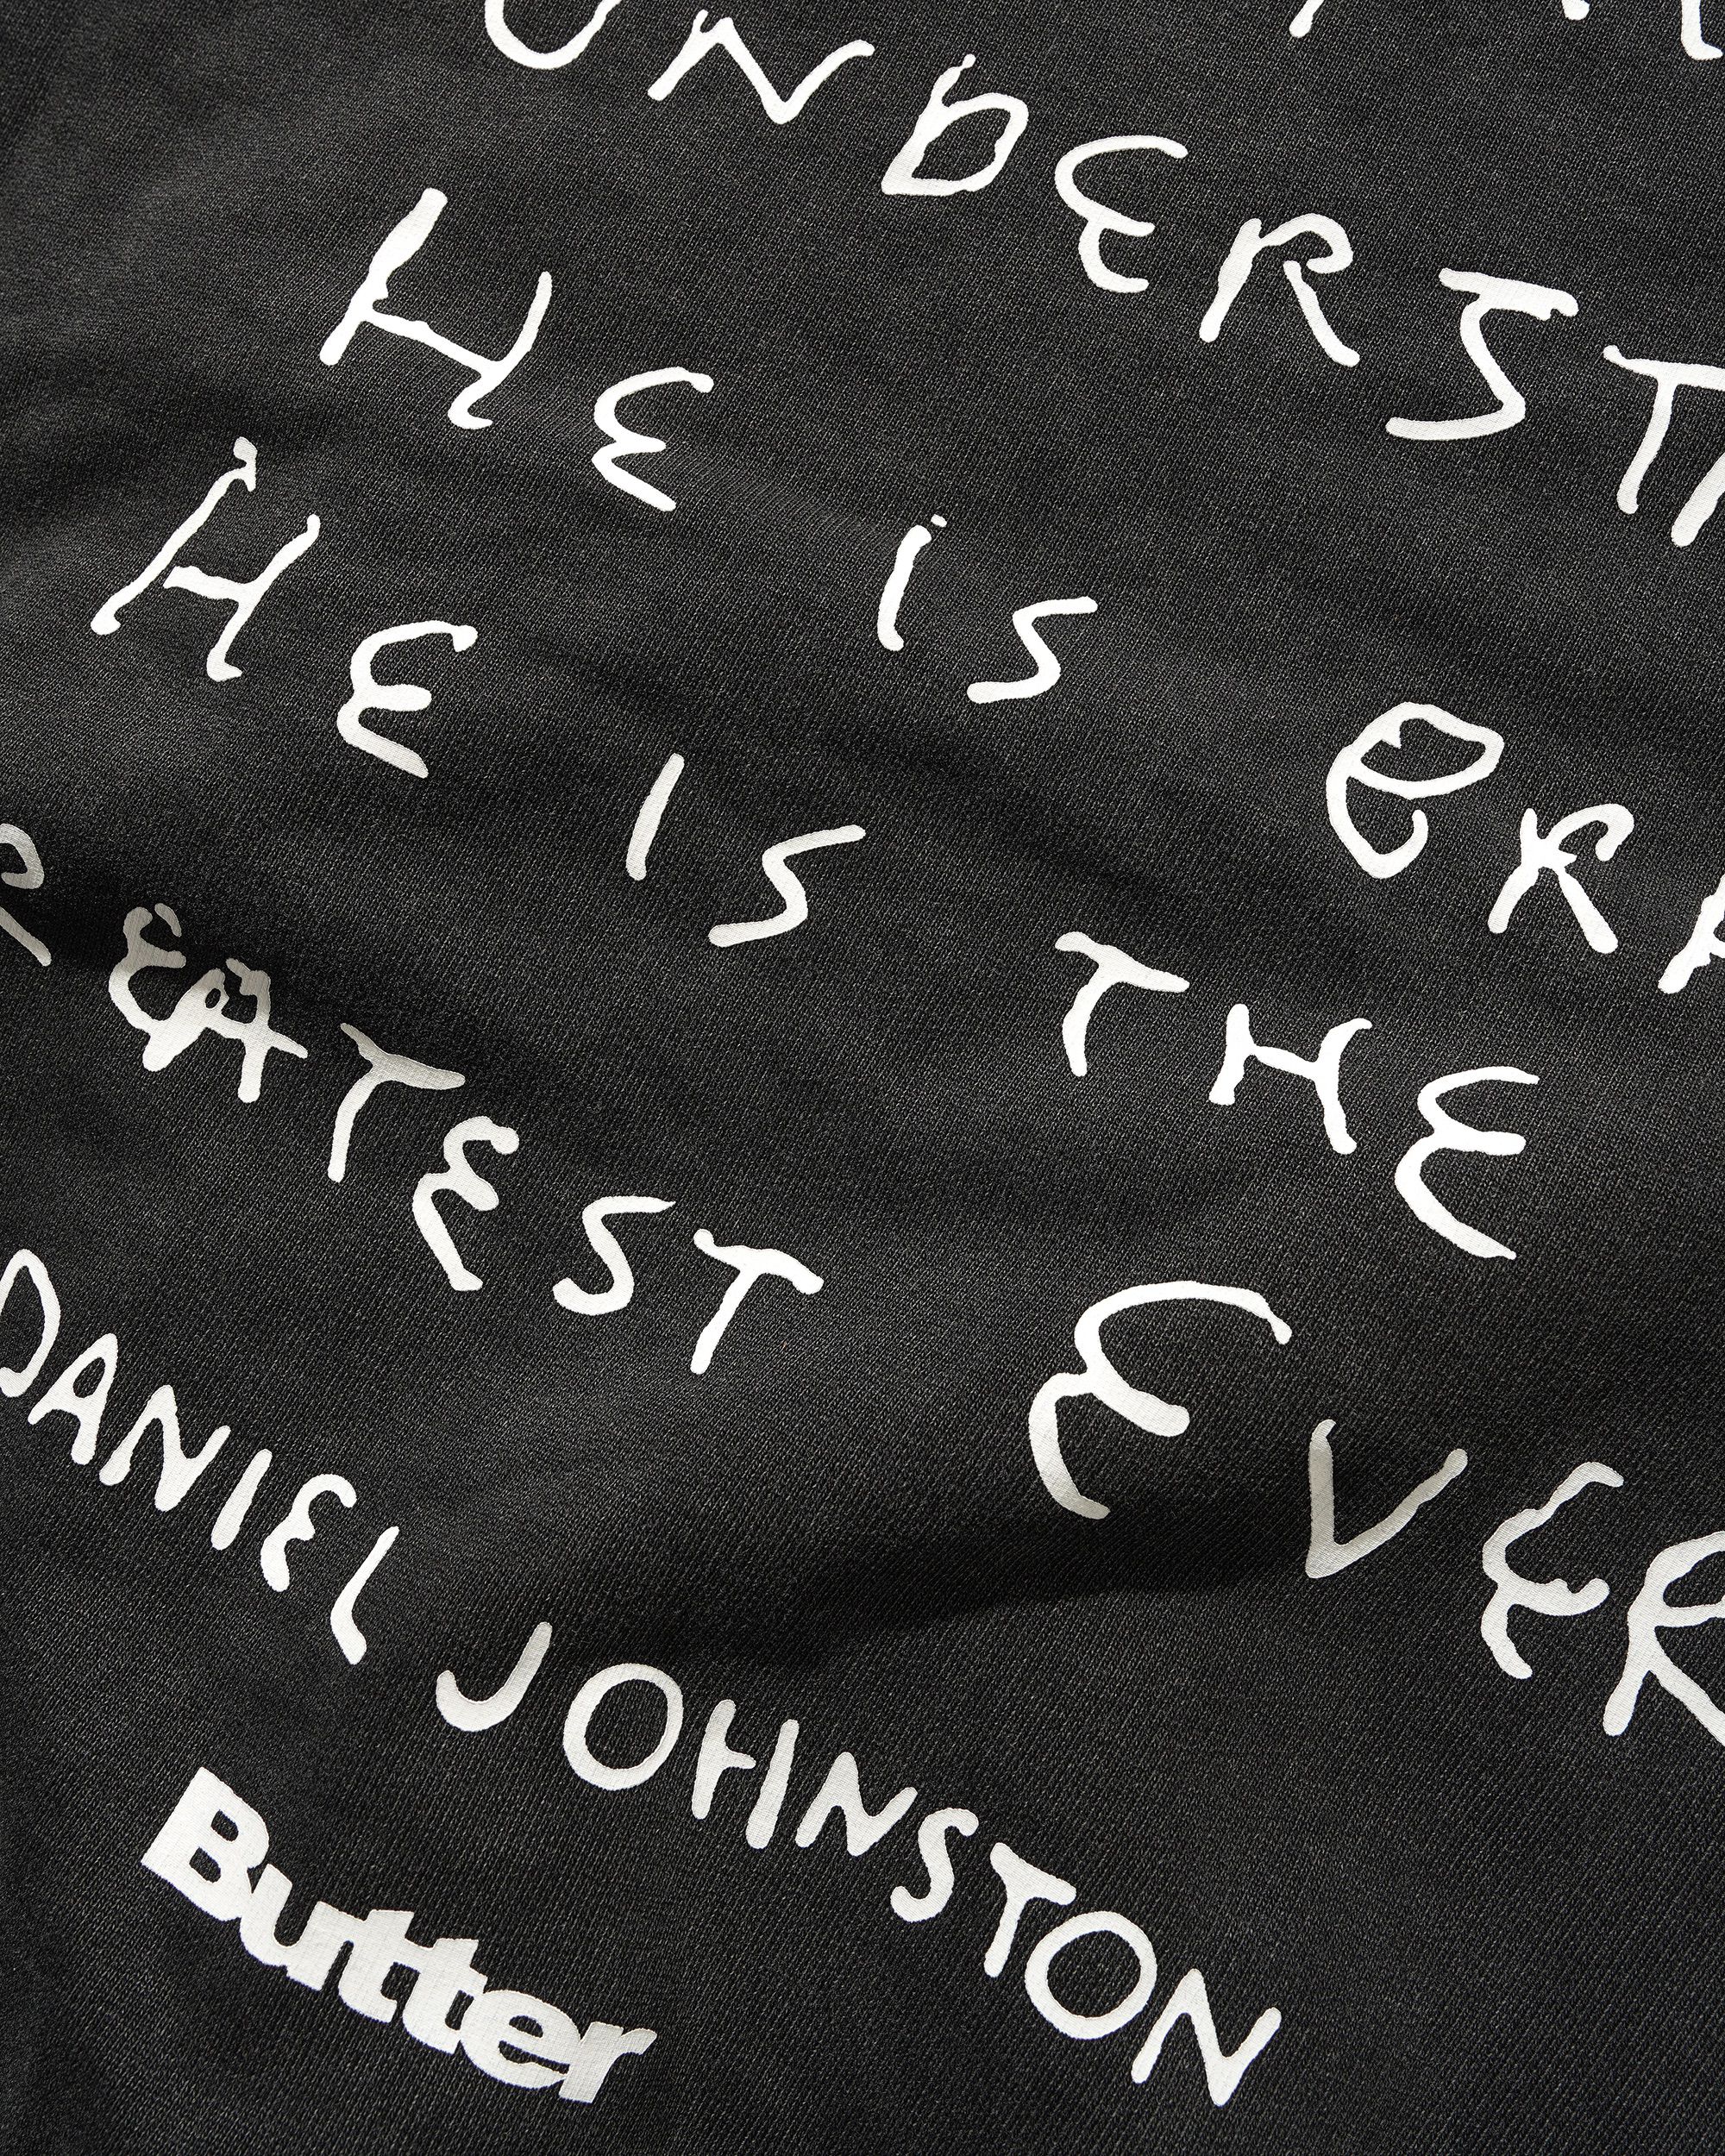 UNDERST
HE iS
HE IS THE
EATEST EVER
DANIEL JOHNSTON
Butter